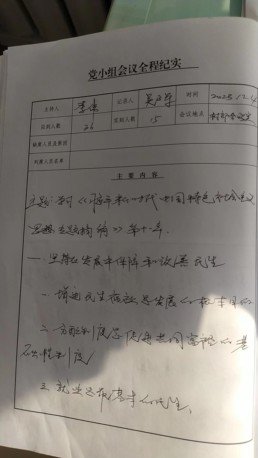 党小组会议全程纪实
主持人 李 记录人 吴 时间 2023.12.4
应到人数 26 实到人数 15 会议地点 村部会议室
缺席人员及原因
列席人员名单
主要内容
主题：学习《习近平新时代中国特色社会主义
思想专题摘编》第十
一、坚持在发展中保障和改善民生
一、增进民生福祉是发展的根本目的
二、分配制度是促进共同富裕的基
础性制度
三、就业是最基本的民生